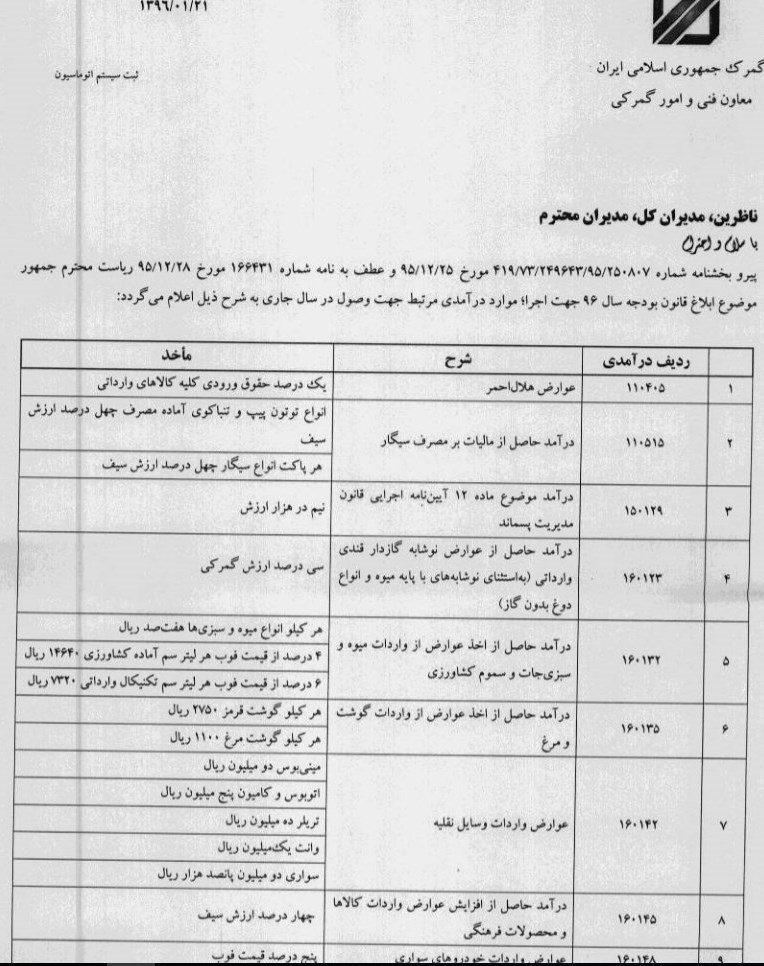 ۱۳۹۶/۰۱/۲۱
گمرک جمهوری اسلامی ایران
معاون فنی و امور گمرکی
ثبت سیستم اتوماسیون
ناظرین، مدیران کل، مدیران محترم
با سلام و احترام
پیرو بخشنامه شماره ۴۱۹/۷۳/۲۴۹۶۴۳/۹۵/۲۵۰۸۰۷ مورخ ۹۵/۱۲/۲۵ و عطف به نامه شماره ۱۶۶۴۳۱ مورخ ۹۵/۱۲/۲۸ ریاست محترم جمهور
موضوع ابلاغ قانون بودجه سال ۹۶ جهت اجرا؛ موارد درآمدی مرتبط جهت وصول در سال جاری به شرح ذیل اعلام می‌گردد:
ردیف درآمدی شرح مأخذ
۱ ۱۱۰۴۰۵ عوارض هلال‌احمر یک درصد حقوق ورودی کلیه کالاهای وارداتی
۲ ۱۱۰۵۱۵ درآمد حاصل از مالیات بر مصرف سیگار
انواع توتون پیپ و تنباکوی آماده مصرف چهل درصد ارزش
سیف
هر پاکت انواع سیگار چهل درصد ارزش سیف
۳ ۱۵۰۱۲۹ درآمد موضوع ماده ۱۲ آیین‌نامه اجرایی قانون
مدیریت پسماند
نیم در هزار ارزش
۴ ۱۶۰۱۲۳ درآمد حاصل از عوارض نوشابه گازدار قندی
وارداتی (به‌استثنای نوشابه‌های با پایه میوه و انواع
دوغ بدون گاز)
سی درصد ارزش گمرکی
۵ ۱۶۰۱۳۲ درآمد حاصل از اخذ عوارض از واردات میوه و
سبزی‌جات و سموم کشاورزی
هر کیلو انواع میوه و سبزی‌ها هفت‌صد ریال
۴ درصد از قیمت فوب هر لیتر سم آماده کشاورزی ۱۴۶۴۰ ریال
۶ درصد از قیمت فوب هر لیتر سم تکنیکال وارداتی ۷۳۲۰ ریال
۶ ۱۶۰۱۳۵ درآمد حاصل از اخذ عوارض از واردات گوشت
و مرغ
هر کیلو گوشت قرمز ۲۷۵۰ ریال
هر کیلو گوشت مرغ ۱۱۰۰ ریال
۷ ۱۶۰۱۴۲ عوارض واردات وسایل نقلیه
مینی‌بوس دو میلیون ریال
اتوبوس و کامیون پنج میلیون ریال
تریلر ده میلیون ریال
وانت یک‌میلیون ریال
سواری دو میلیون پانصد هزار ریال
۸ ۱۶۰۱۴۵ درآمد حاصل از افزایش عوارض واردات کالاها
و محصولات فرهنگی
چهار درصد ارزش سیف
۹ ۱۶۰۱۴۸ عوارض واردات خودروهای سواری پنج درصد قیمت فوب